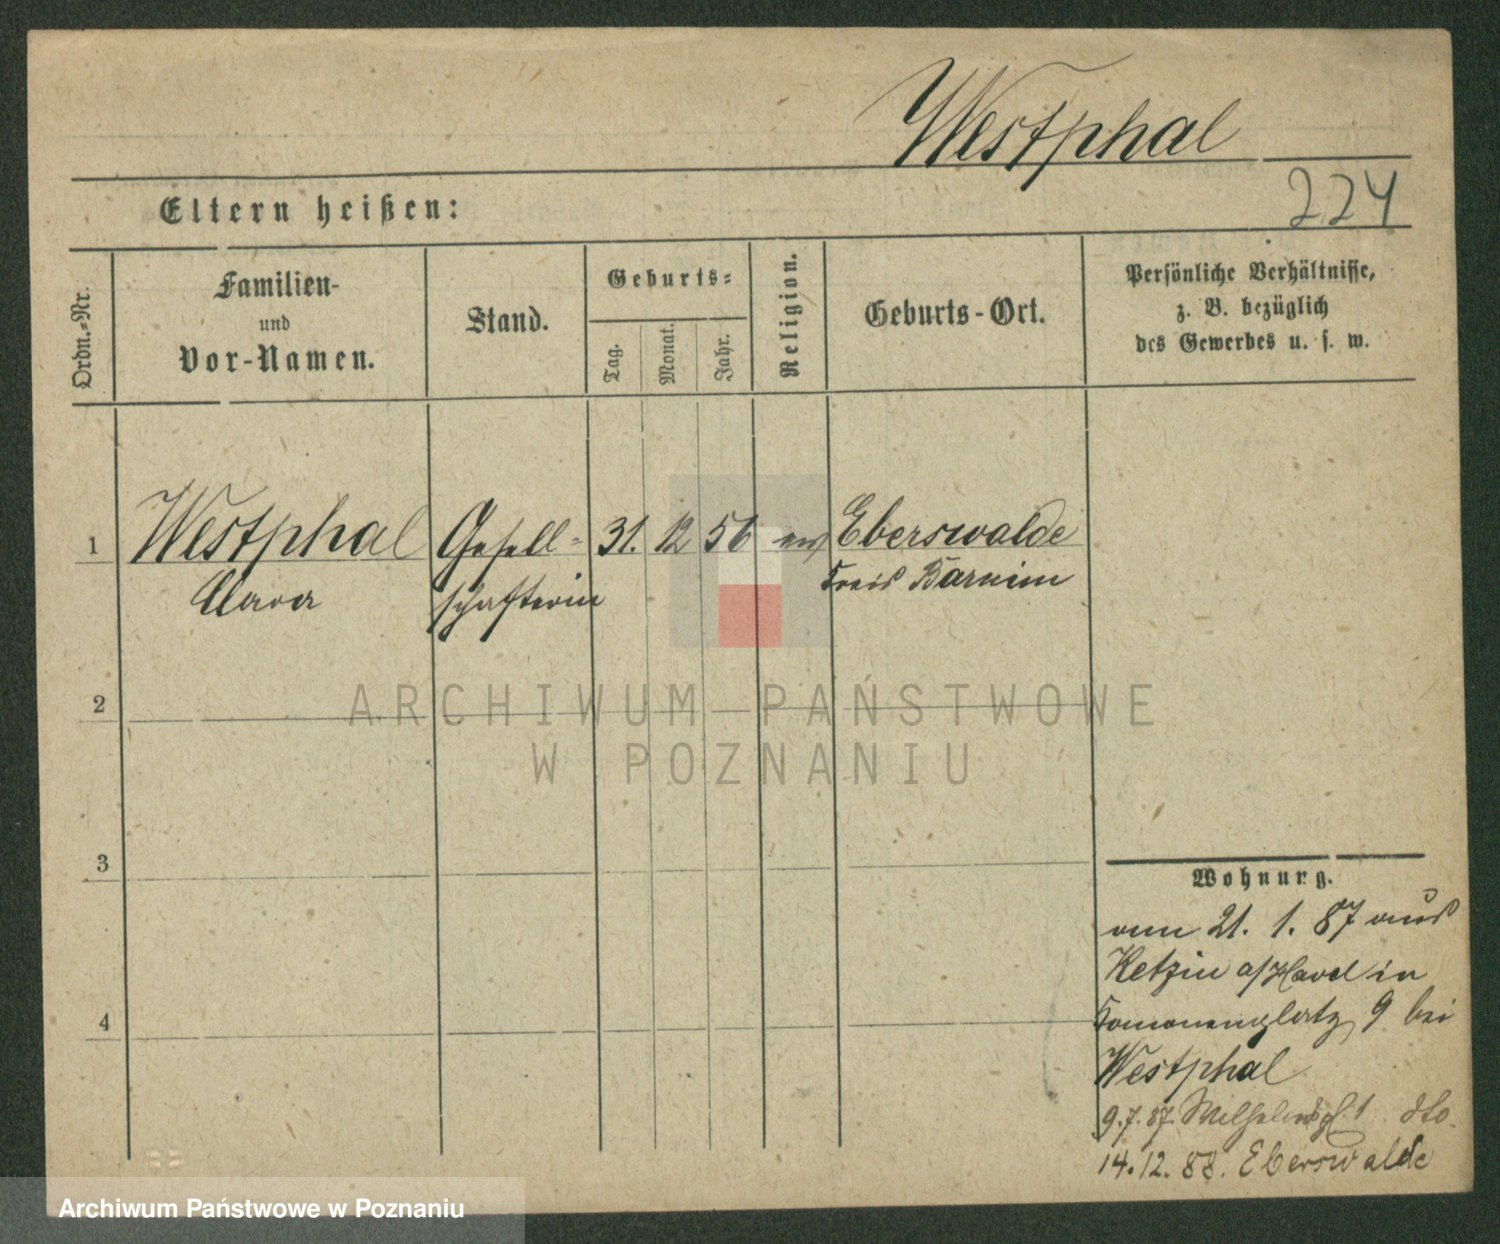 Westphal
224
Eltern heißen:
Ordn.-Nr.
Familien-
und
Vor-Namen.
Stand.
Geburts-
Tag.
Monat.
Jahr.
Religion.
Geburts-Ort.
Persönliche Verhältnisse,
z. B. bezüglich
des Gewerbes u. s. w.
1 Westphal Gesell- 31. 12 56 ev Eberswalde
Clara schafterin Kreis Barnim
2
ARCHIWUM PAŃSTWOWE
W POZNANIU
3
Wohnung.
21. 1. 87 aus
Ketzin a/Havel in
4
9 bei
Westphal
9.7.87. Wilhelmspl. 1 dto.
14.12.88. Eberswalde
Archiwum Państwowe w Poznaniu